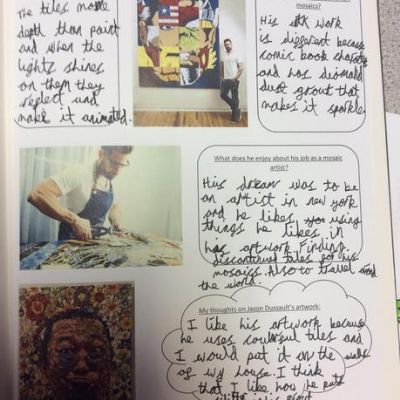 The tiles make
depth than paint
and when the
lights shines
on them they
reflect and
make it animated.
mosaics?
His work
is different because
comic book
and has diomand
dust grout that
makes it sparkle
What does he enjoy about his job as a mosaic
artist?
His dream was to be
an artist in new york
and he likes using
things he likes in
his artwork. Finding
discontinued tiles for his
mosaics. Also to travel
the world.
My thoughts on Jason Dussault's artwork:
I like his artwork because
he uses coulorful tiles and
I would put it on the walls
of my house. I think
that I like how he puts